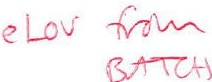 eLOV from
BATCH